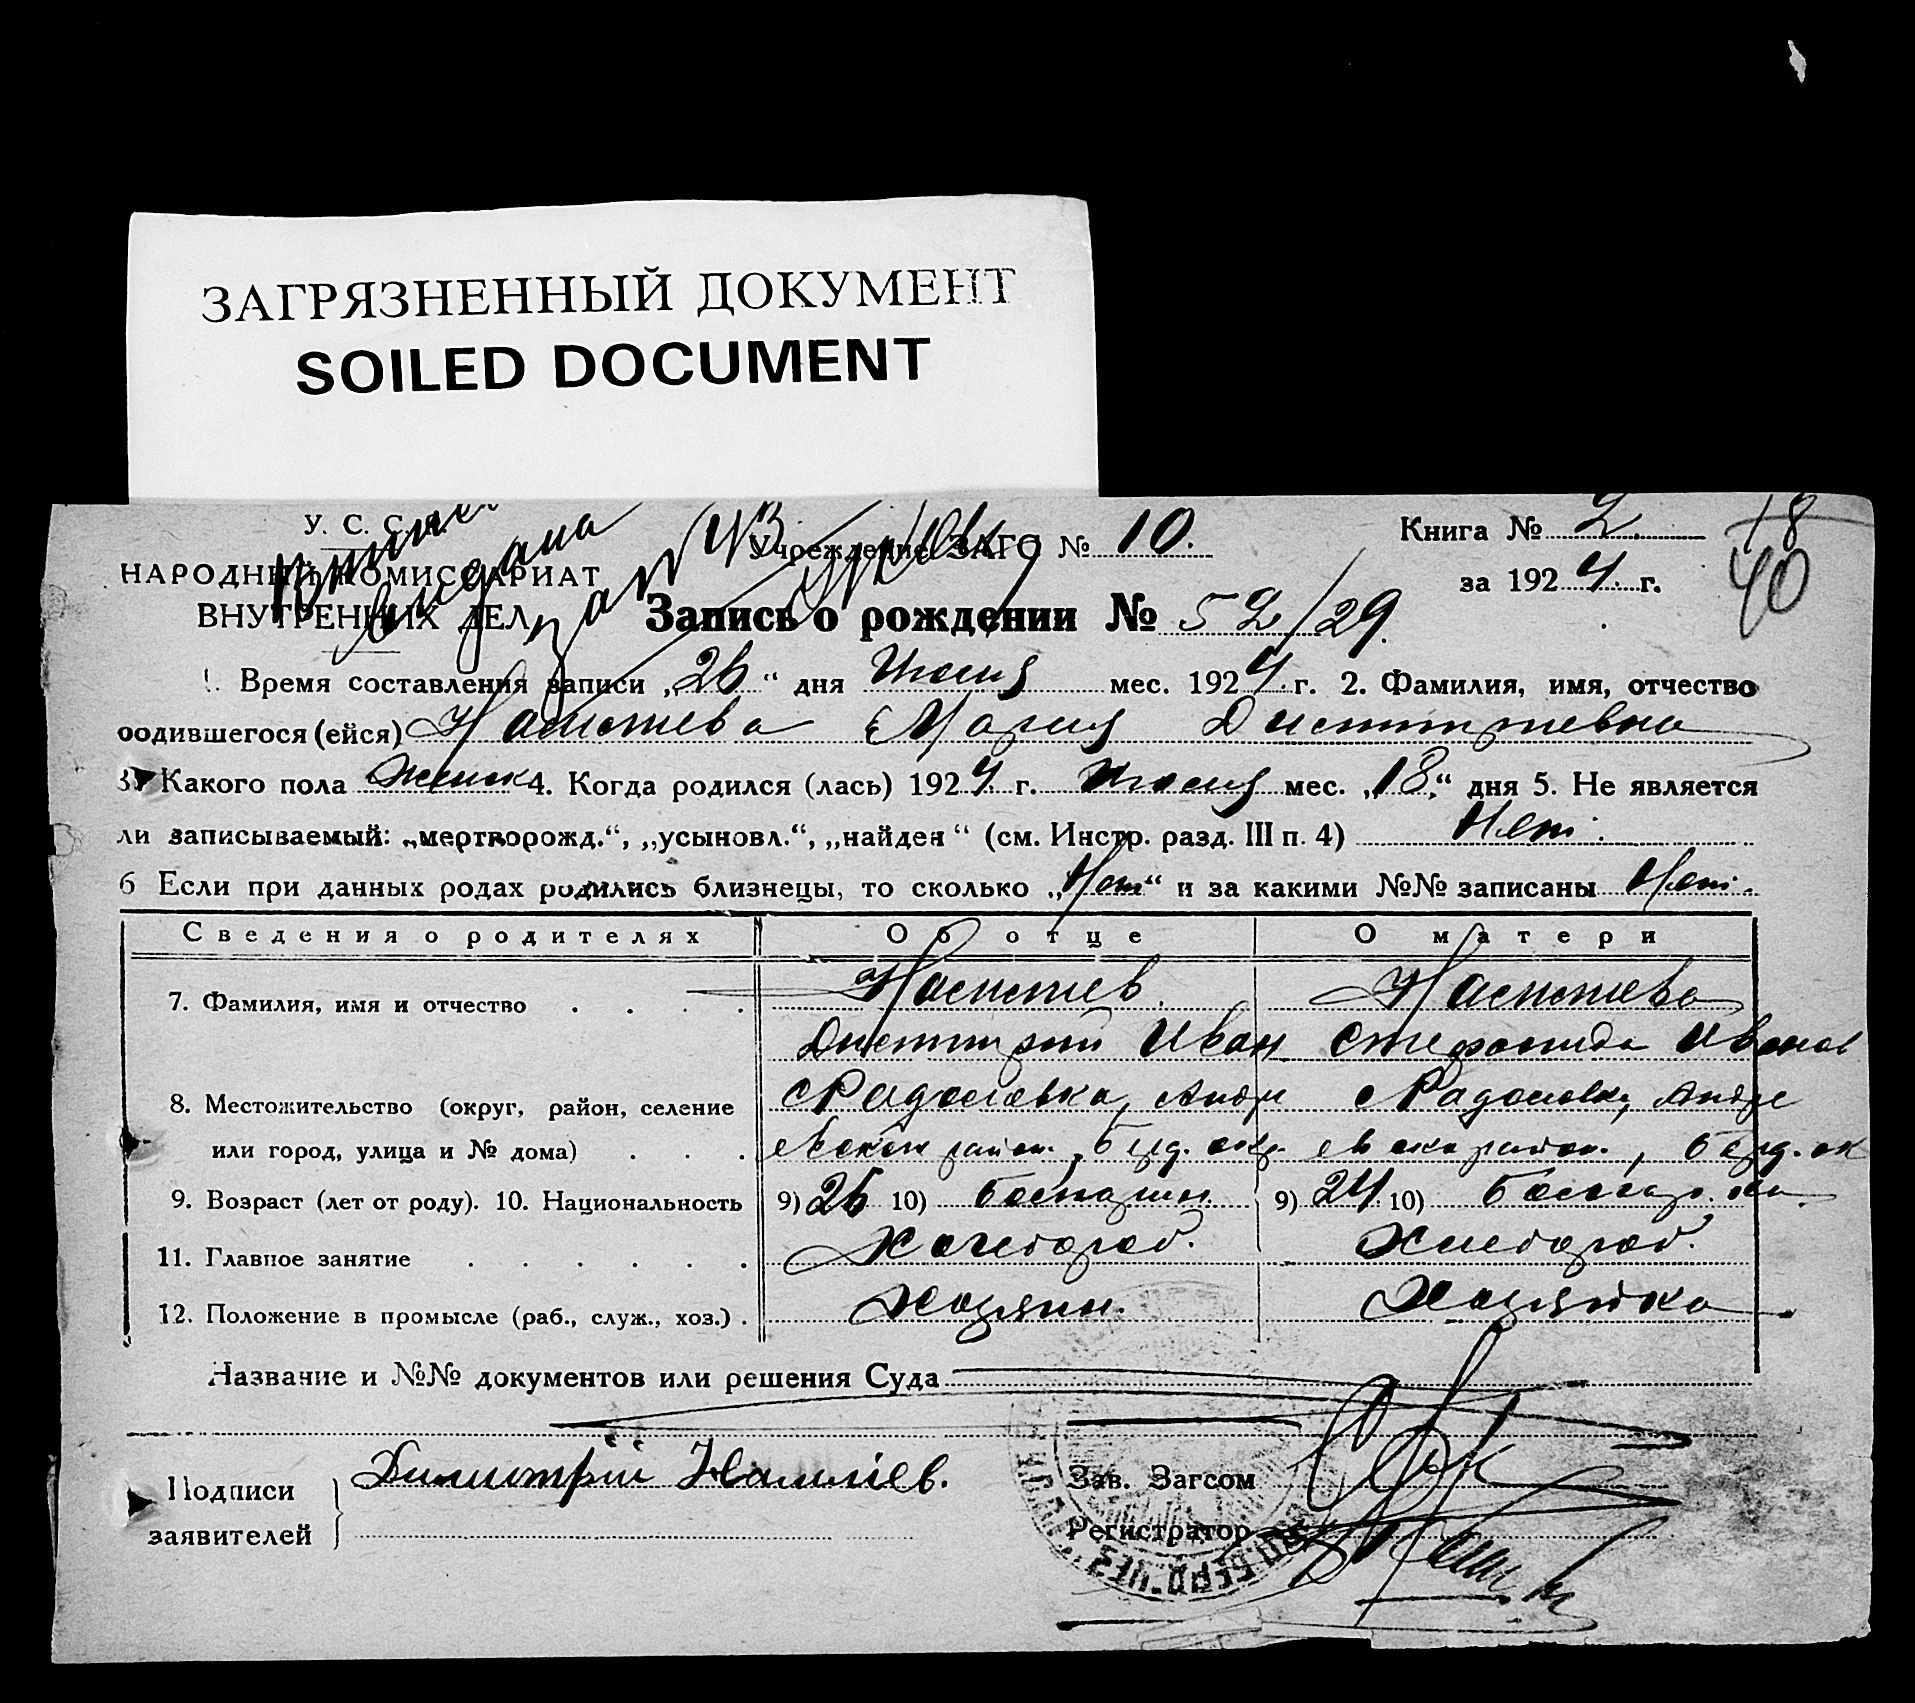 ЗАГРЯЗНЕННЫЙ ДОКУМЕНТ
SOILED DOCUMENT
У. С. С. Р.
НАРОДНЫЙ КОМИССАРИАТ
ВНУТРЕННИХ ДЕЛ
видана
Учреждение ЗАГС № 10.
Книга № 2.
за 1924 г.
18
40
Запись о рождении № 52/29.
1. Время составления записи „26“ дня Июля мес. 1924 г. 2. Фамилия, имя, отчество
родившегося (ейся) Мария Димитриевна
3. Какого пола женск 4. Когда родился (лась) 1924 г. Июля мес. „18“ дня 5. Не является
ли записываемый: „мертворожд.“, „усыновл.“, „найден“ (см. Инстр. разд. III п. 4) Нет.
6 Если при данных родах родились близнецы, то сколько „Нет“ и за какими №№ записаны Нет.
Сведения о родителях Об отце О матери
7. Фамилия, имя и отчество
Димитрий Иван Степанида Иванов
8. Местожительство (округ, район, селение
с Радоловка, Андре с Радоловка, Андре
или город, улица и № дома) евском район., Берд. окр. евско район., Берд. ок
9. Возраст (лет от роду). 10. Национальность 9) 26 10) Болгарин. 9) 24 10) Болгар. ка
11. Главное занятие Хлебороб. Хлебороб.
12. Положение в промысле (раб., служ., хоз.) Хозяин. Хозяйка
Название и №№ документов или решения Суда
Подписи
заявителей
Димитрій
Зав. Загсом
Регистратор